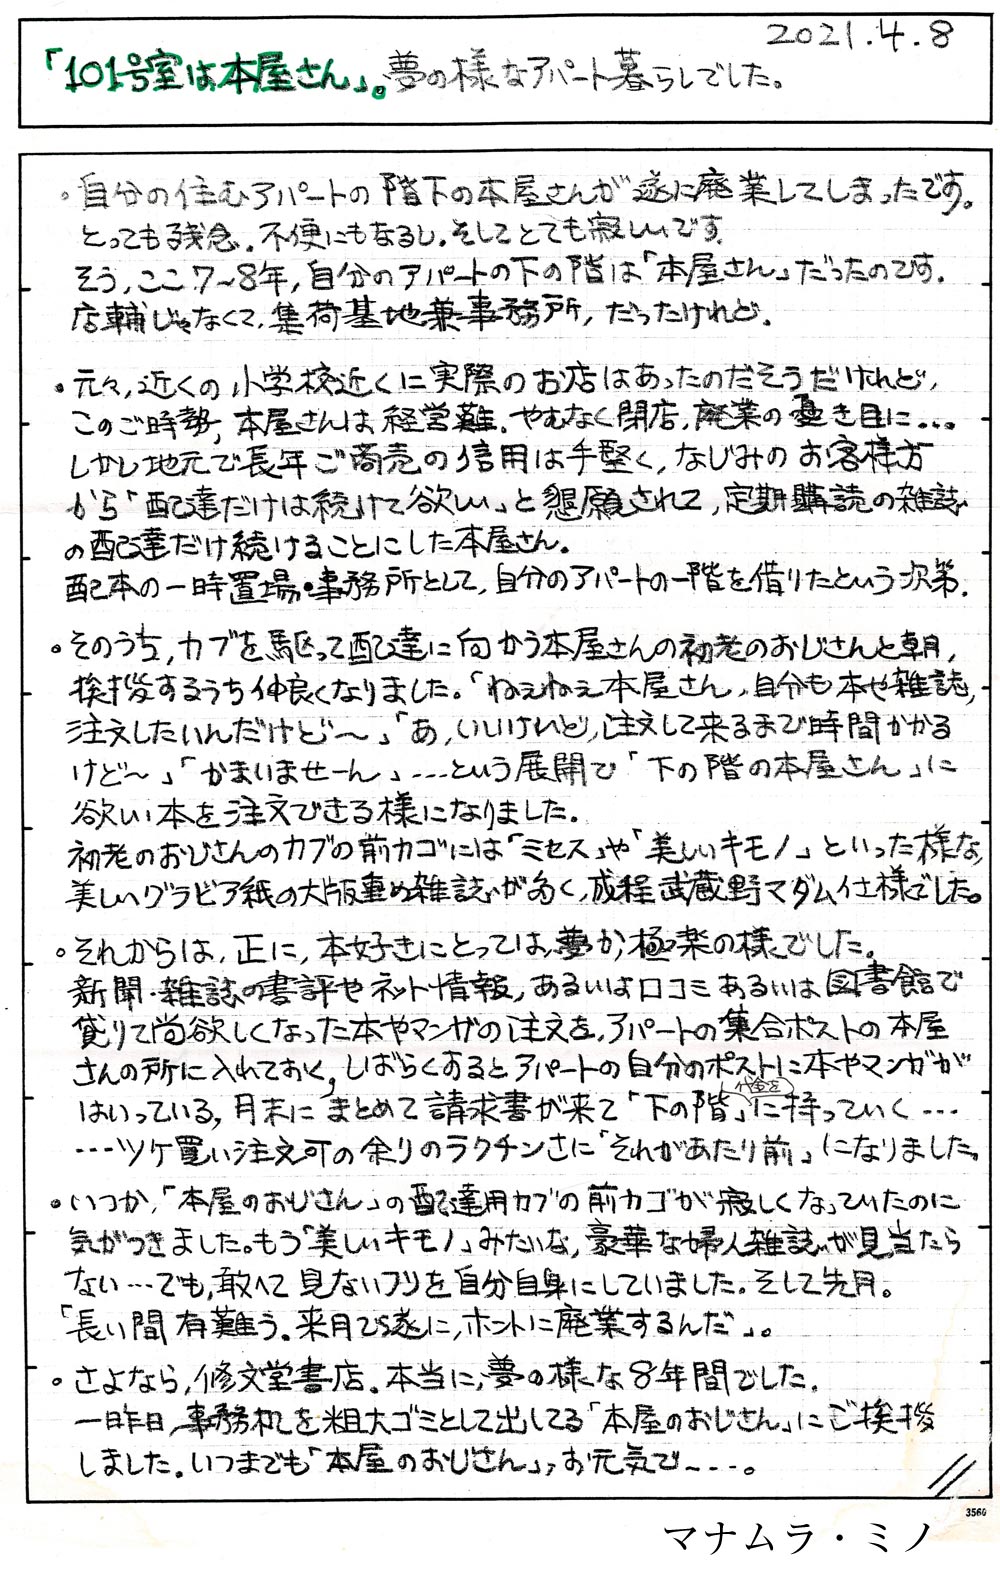 2021.4.8
「101号室は本屋さん」。夢の様なアパート暮らしでした。
。自分の住むアパートの階下の本屋さんが遂に廃業してしまったです。
とっても残念。不便にもなるし。そしてとても寂しいです。
そう、ここ7〜8年、自分のアパートの下の階は「本屋さん」だったのです。
店輔じゃなくて、集荷基地兼事務所、だったけれど。
・元々、近くの小学校近くに実際のお店はあったのだそうだけれど、
このご時勢、本屋さんは経営難。やむなく閉店、廃業の憂き目に…
しかし地元で長年ご商売の信用は手堅く、なじみのお客様方
から「配達だけは続けて欲しい」と懇願されて、定期購読の雑誌
の配達だけ続けることにした本屋さん。
配本の一時置場・事務所として、自分のアパートの一階を借りたという次第。
。そのうち、カブを駆って配達に向かう本屋さんの初老のおじさんと朝、
挨拶するうち仲良くなりました。「ねえねえ本屋さん、自分も本や雑誌、
注文したいんだけど〜」「あ、いいけれど、注文して来るまで時間かかる
けど〜」「かまいませーん」…という展開で「下の階の本屋さん」に
欲しい本を注文できる様になりました。
初老のおじさんのカブの前カゴには「ミセス」や「美しいキモノ」といった様な、
美しいグラビア紙の大版重め雑誌が多く、成程武蔵野マダム仕様でした。
。それからは、正に、本好きにとっては、夢か、極楽の様でした。
新聞・雑誌の書評やネット情報、あるいは口コミあるいは図書館で
貸りて尚欲しくなった本やマンガの注文を、アパートの集合ポストの本屋
さんの所に入れておく、しばらくするとアパートの自分のポストに本やマンガが
はいっている、月末にまとめて請求書が来て「下の階」に代金を持っていく…
…ツケ買い注文可の余りのラクチンさに「それがあたり前」になりました。
。いつか、「本屋のおじさん」の配達用カブの前カゴが寂しくなっていたのに
気がつきました。もう「美しいキモノ」みたいな、豪華な婦人雑誌が見当たら
ない…でも、敢へて見ないフリを自分自身にしていました。そして先月。
「長い間有難う。来月で遂に、ホントに廃業するんだ」。
。さよなら、修文堂書店。本当に、夢の様な8年間でした。
一昨日、事務机を粗大ゴミとして出してる「本屋のおじさん」にご挨拶
しました。いつまでも「本屋のおじさん」、お元気で…。
3560
マナムラ・ミノ